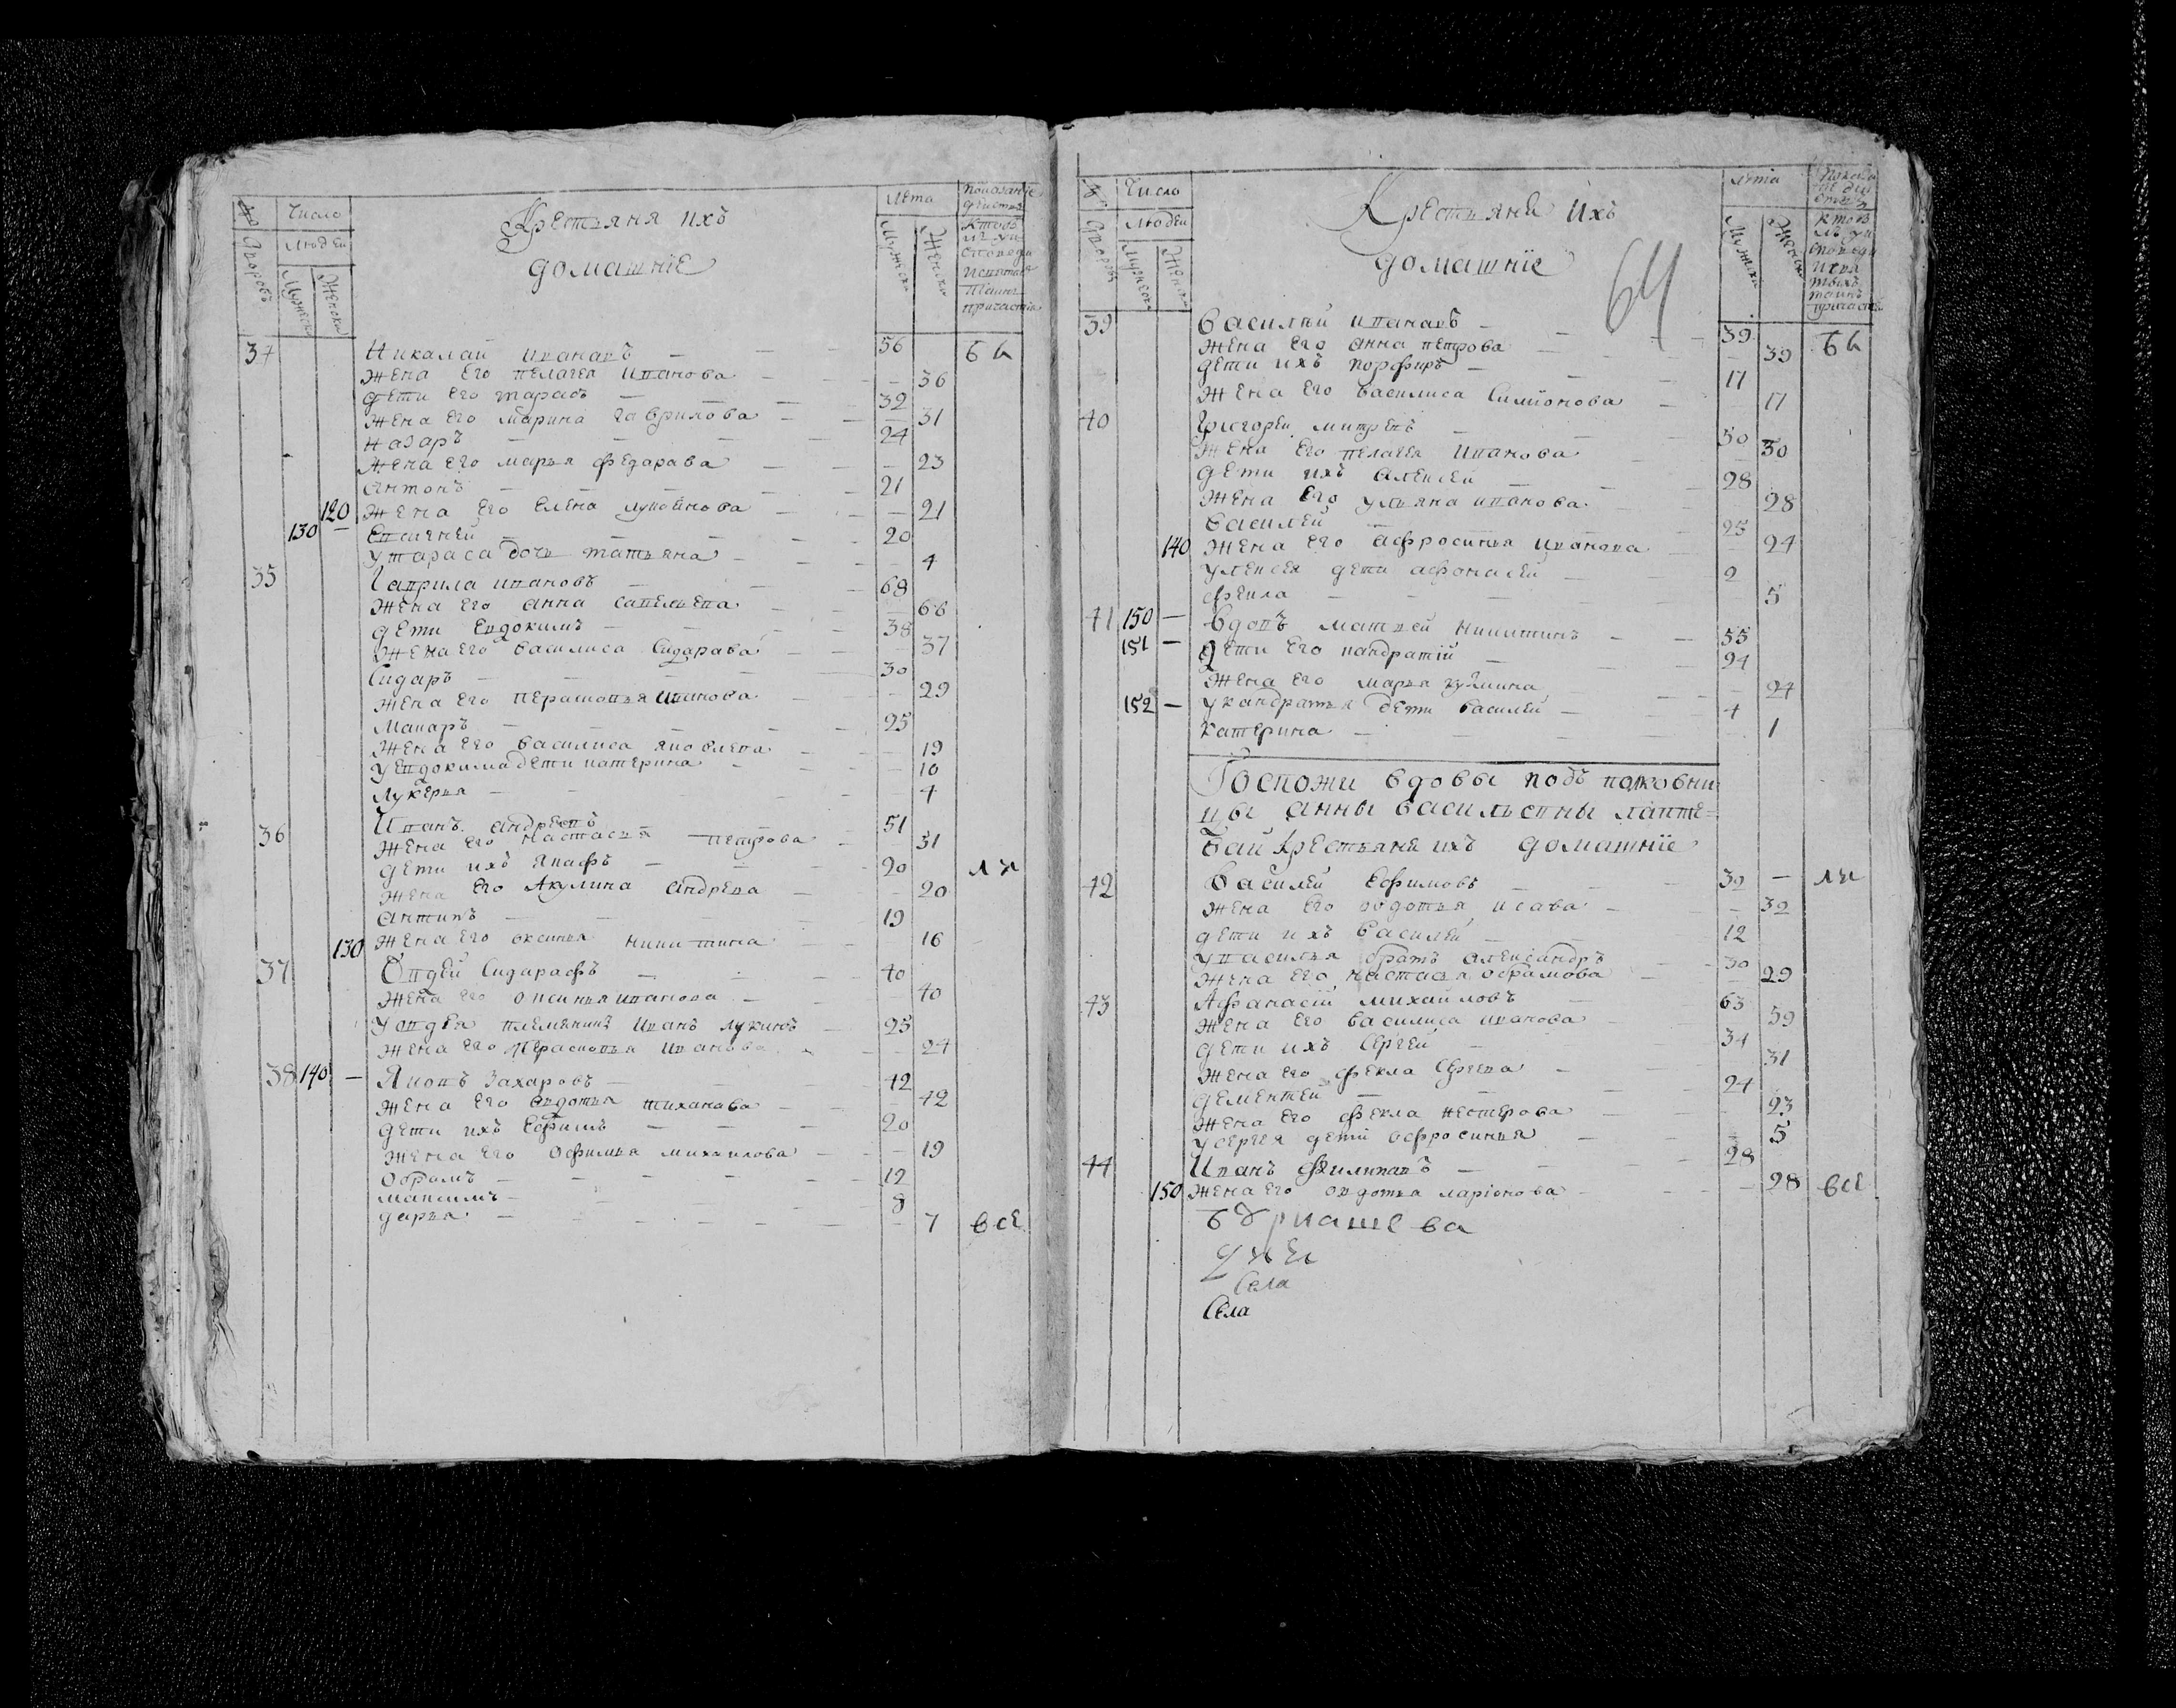 № дворовъ
Число
людей
Мужеска
Женска
Крестьяня ихъ
домашніе
Лета
Мужеска
Женска
37
Никалай Ивановъ — 56
жена его пелагея Иванова — 36
дети его тарасъ — 32
жена его марина гаврилова — 31
назаръ — 24
жена его марья федарава — 23
антонъ — 21
120 жена его елена — 21
130 Евсигней — 20
у тараса дочь татьяна — 4
35 Гаврила ивановъ — 68
жена его анна савельева — 66
дети Евдокимъ — 38
жена его василиса Сидарава — 37
Сидаръ — 30
жена его перасковья Иванова — 29
Макаръ — 25
жена его василиса яковлева — 19
у евдокима дети катерина — 10
лукерья — 4
36 Иванъ андреевъ — 51
жена его настасья петрова — 51
дети ихъ — 20
жена его Акулина андрева — 20
антипъ — 19
130 жена его оксинья никитина 16
37 Овдей Сидарафъ — 40
жена его оксинья иванова — 40
у овдея племянникъ иванъ лукинъ — 25
жена его перасковья иванова — 24
38 140 — Яковъ Захаровъ — 42
жена его овдотья тиханава — 42
дети ихъ Ефимъ — 20
жена его офимья михаилова — 19
обрамъ — 12
максимъ — 8
дарья — 7 все
№ дворовъ
Число
людей
Мужеска
Женска
Крестьяня ихъ
домашніе
64
лета
Мужеска
Женска
39 Василий ивановъ — 39
жена его анна петрова — 39
дети ихъ порфиръ — 17
жена его василиса Симионова — 17
40 Григорей митревъ — 50
жена его пелагея Иванова — 50
дети ихъ алексей — 28
жена его ульяна иванова — 28
василей — 25
140 жена его афросинья иванова — 24
дети афонасей — 2
— 5
41 150 — вдовъ матвей никитинъ — 55
151 — дети его кандратий — 24
жена его марья — 24
152 — у кандратья дети василей — 4
катерина — 1
Госпожи вдовы подъ полковни
цы анны васильевны лапте=
вай крестьяня ихъ домашніе
42 Василей Ефимовъ — 32
жена его овдотья исава — 32
дети ихъ василей — 12
у василья братъ александръ — 30
жена его настасья обрамова — 29
43 Афанасій михайловъ — 63
жена его василиса иванова — 59
дети ихъ сергей — 34
жена его фекла Сергева — 31
дементей — 24
жена его фекла нестерова — 23
у сергея дети офросинья — 5
44 Иванъ филиповъ — 28
150 жена его овдотья ларіонова — 28 все
Села
Села